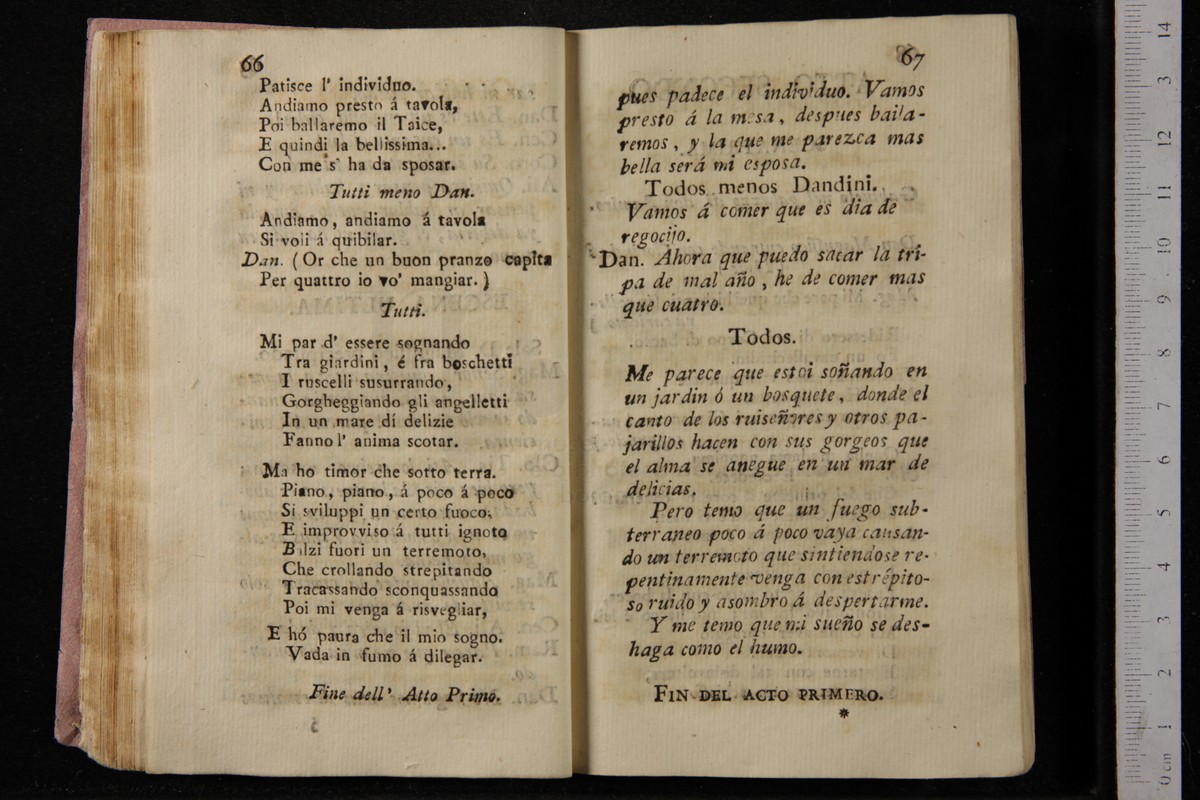 66
Patisce l' individuo.
Andiamo presto á tavola,
Poi ballaremo il Taice,
E quindi la bellissima...
Con me s' ha da sposar.
Tutti meno Dan.
Andiamo, andiamo á tavola
Si voli á quibilar.
Dan. (Or che un buon pranzo capita
Per quattro io vo' mangiar.)
Tutti.
Mi par d' essere sognando
Tra giardini, é fra boschetti
I ruscelli susurrando,
Gorgheggiando gli angelletti
In un mare dí delizie
Fanno l' anima scotar.
Ma ho timor che sotto terra.
Piano, piano, á poco á poco
Si sviluppi un certo fuoco;
E improvviso á tutti ignoto
Balzi fuori un terremoto,
Che crollando strepitando
Tracassando sconquassando
Poi mi venga á risvegliar,
E hó paura che il mio sogno.
Vada in fumo á dilegar.
Fine dell' Atto Primo.
67
pues padece el individuo. Vamos
presto á la mesa, despues baila-
remos, y la que me parezca mas
bella será mi esposa.
Todos menos Dandini.
Vamos á comer que es dia de
regocijo.
Dan. Ahora que puedo sacar la tri-
pa de mal año, he de comer mas
que cuatro.
Todos.
Me parece que estoi soñando en
un jardin ó un bosquete, donde el
canto de los ruiseñores y otros pa-
jarillos hacen con sus gorgeos que
el alma se anegue en un mar de
delicias.
Pero temo que un fuego sub-
terraneo poco á poco vaya causan-
do un terremoto que sintiendose re-
pentinamente venga con estrépito-
so ruido y asombro á despertarme.
Y me temo que mi sueño se des-
haga como el humo.
FIN DEL ACTO PRIMERO.
*
0 cm 1 2 3 4 5 6 7 8 9 10 11 12 13 14